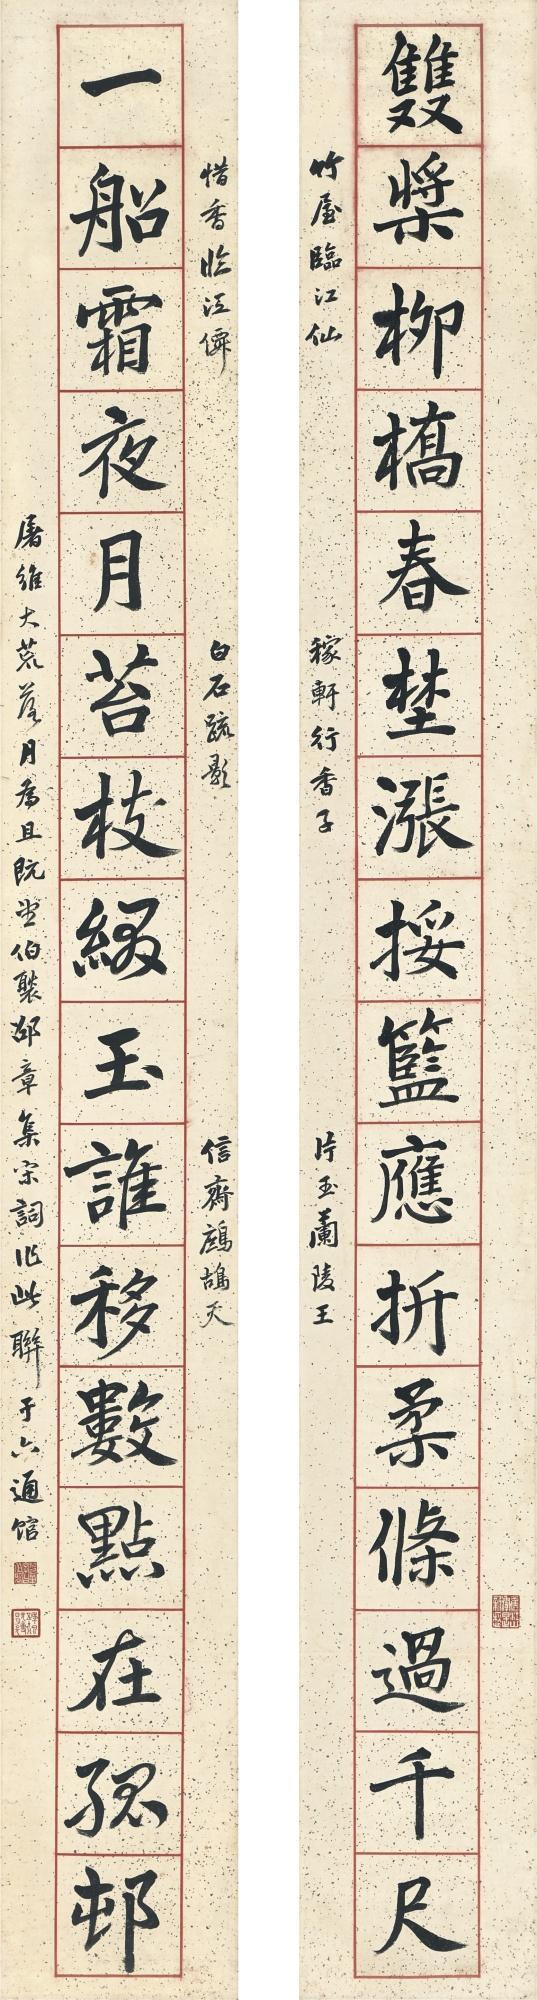 雙槳柳橋春埜漲挼籃應折柔條過千尺
竹屋臨江仙
稼軒行香子
片玉蘭陵王
惜香臨江僊
白石疏影
信齋鷓鴣天
一船霜夜月苔枝綴玉誰移數點在孤邨
屠維大荒落月為且既望伯褧邵章集宋詞作此聯于六通館